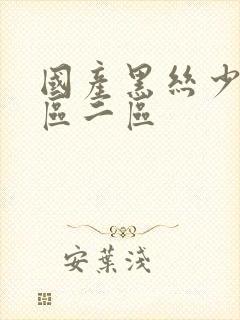 國產黑絲少
區二區
安葉淺